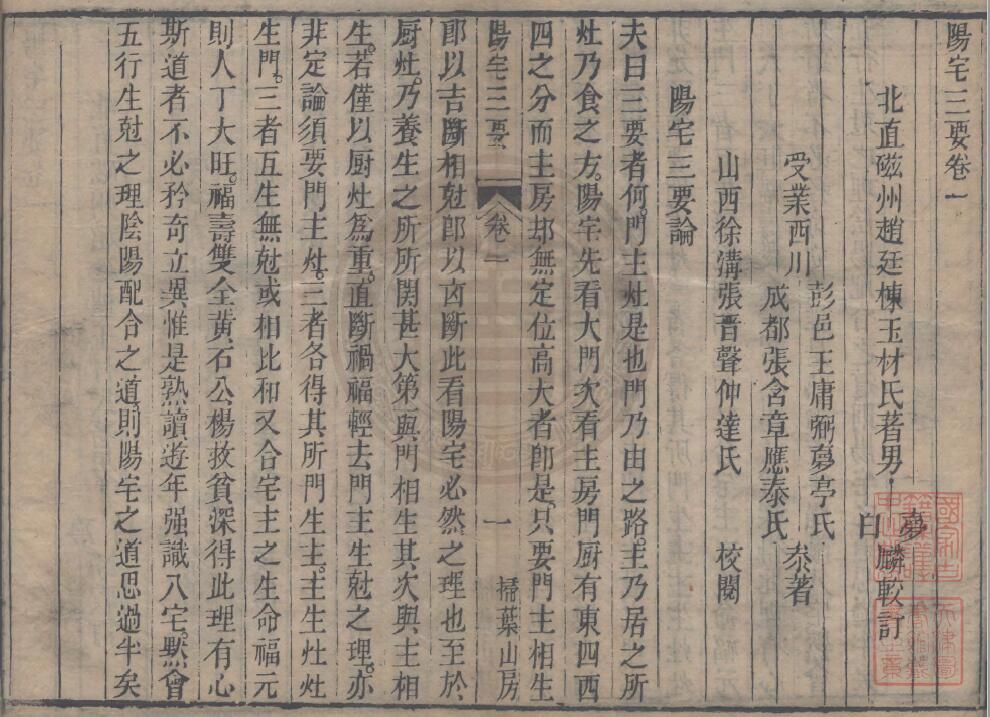 陽宅三要卷一
北直磁州趙廷棟玉材氏著男夢白麟較訂
受業西川彭邑王庸弼夢亭氏成都張含章應泰氏叅著
山西徐溝張晋聲仲達氏校閱
陽宅三要論
夫曰三要者何門主灶是也門乃由之路主乃居之所
灶乃食之方陽宅先看大門次看主房門厨有東四西
四之分而主房却無定位高大者即是只要門主相生
陽宅三要 卷一 一 掃葉山房
即以吉斷相尅即以凶斷此看陽宅必然之理也至於
厨灶乃養生之所所関甚大第與門相生其次與主相
生若僅以厨灶爲重直斷禍福輕去門主生尅之理亦
非定論須要門主灶三者各得其所門生主主生灶灶
生門三者互生無尅或相比和又合宅主之生命福元
則人丁大旺福壽雙全黃石公楊救貧深得此理有心
斯道者不必矜奇立異惟是熟讀遊年强識八宅默會
五行生尅之理陰陽配合之道則陽宅之道思過半矣